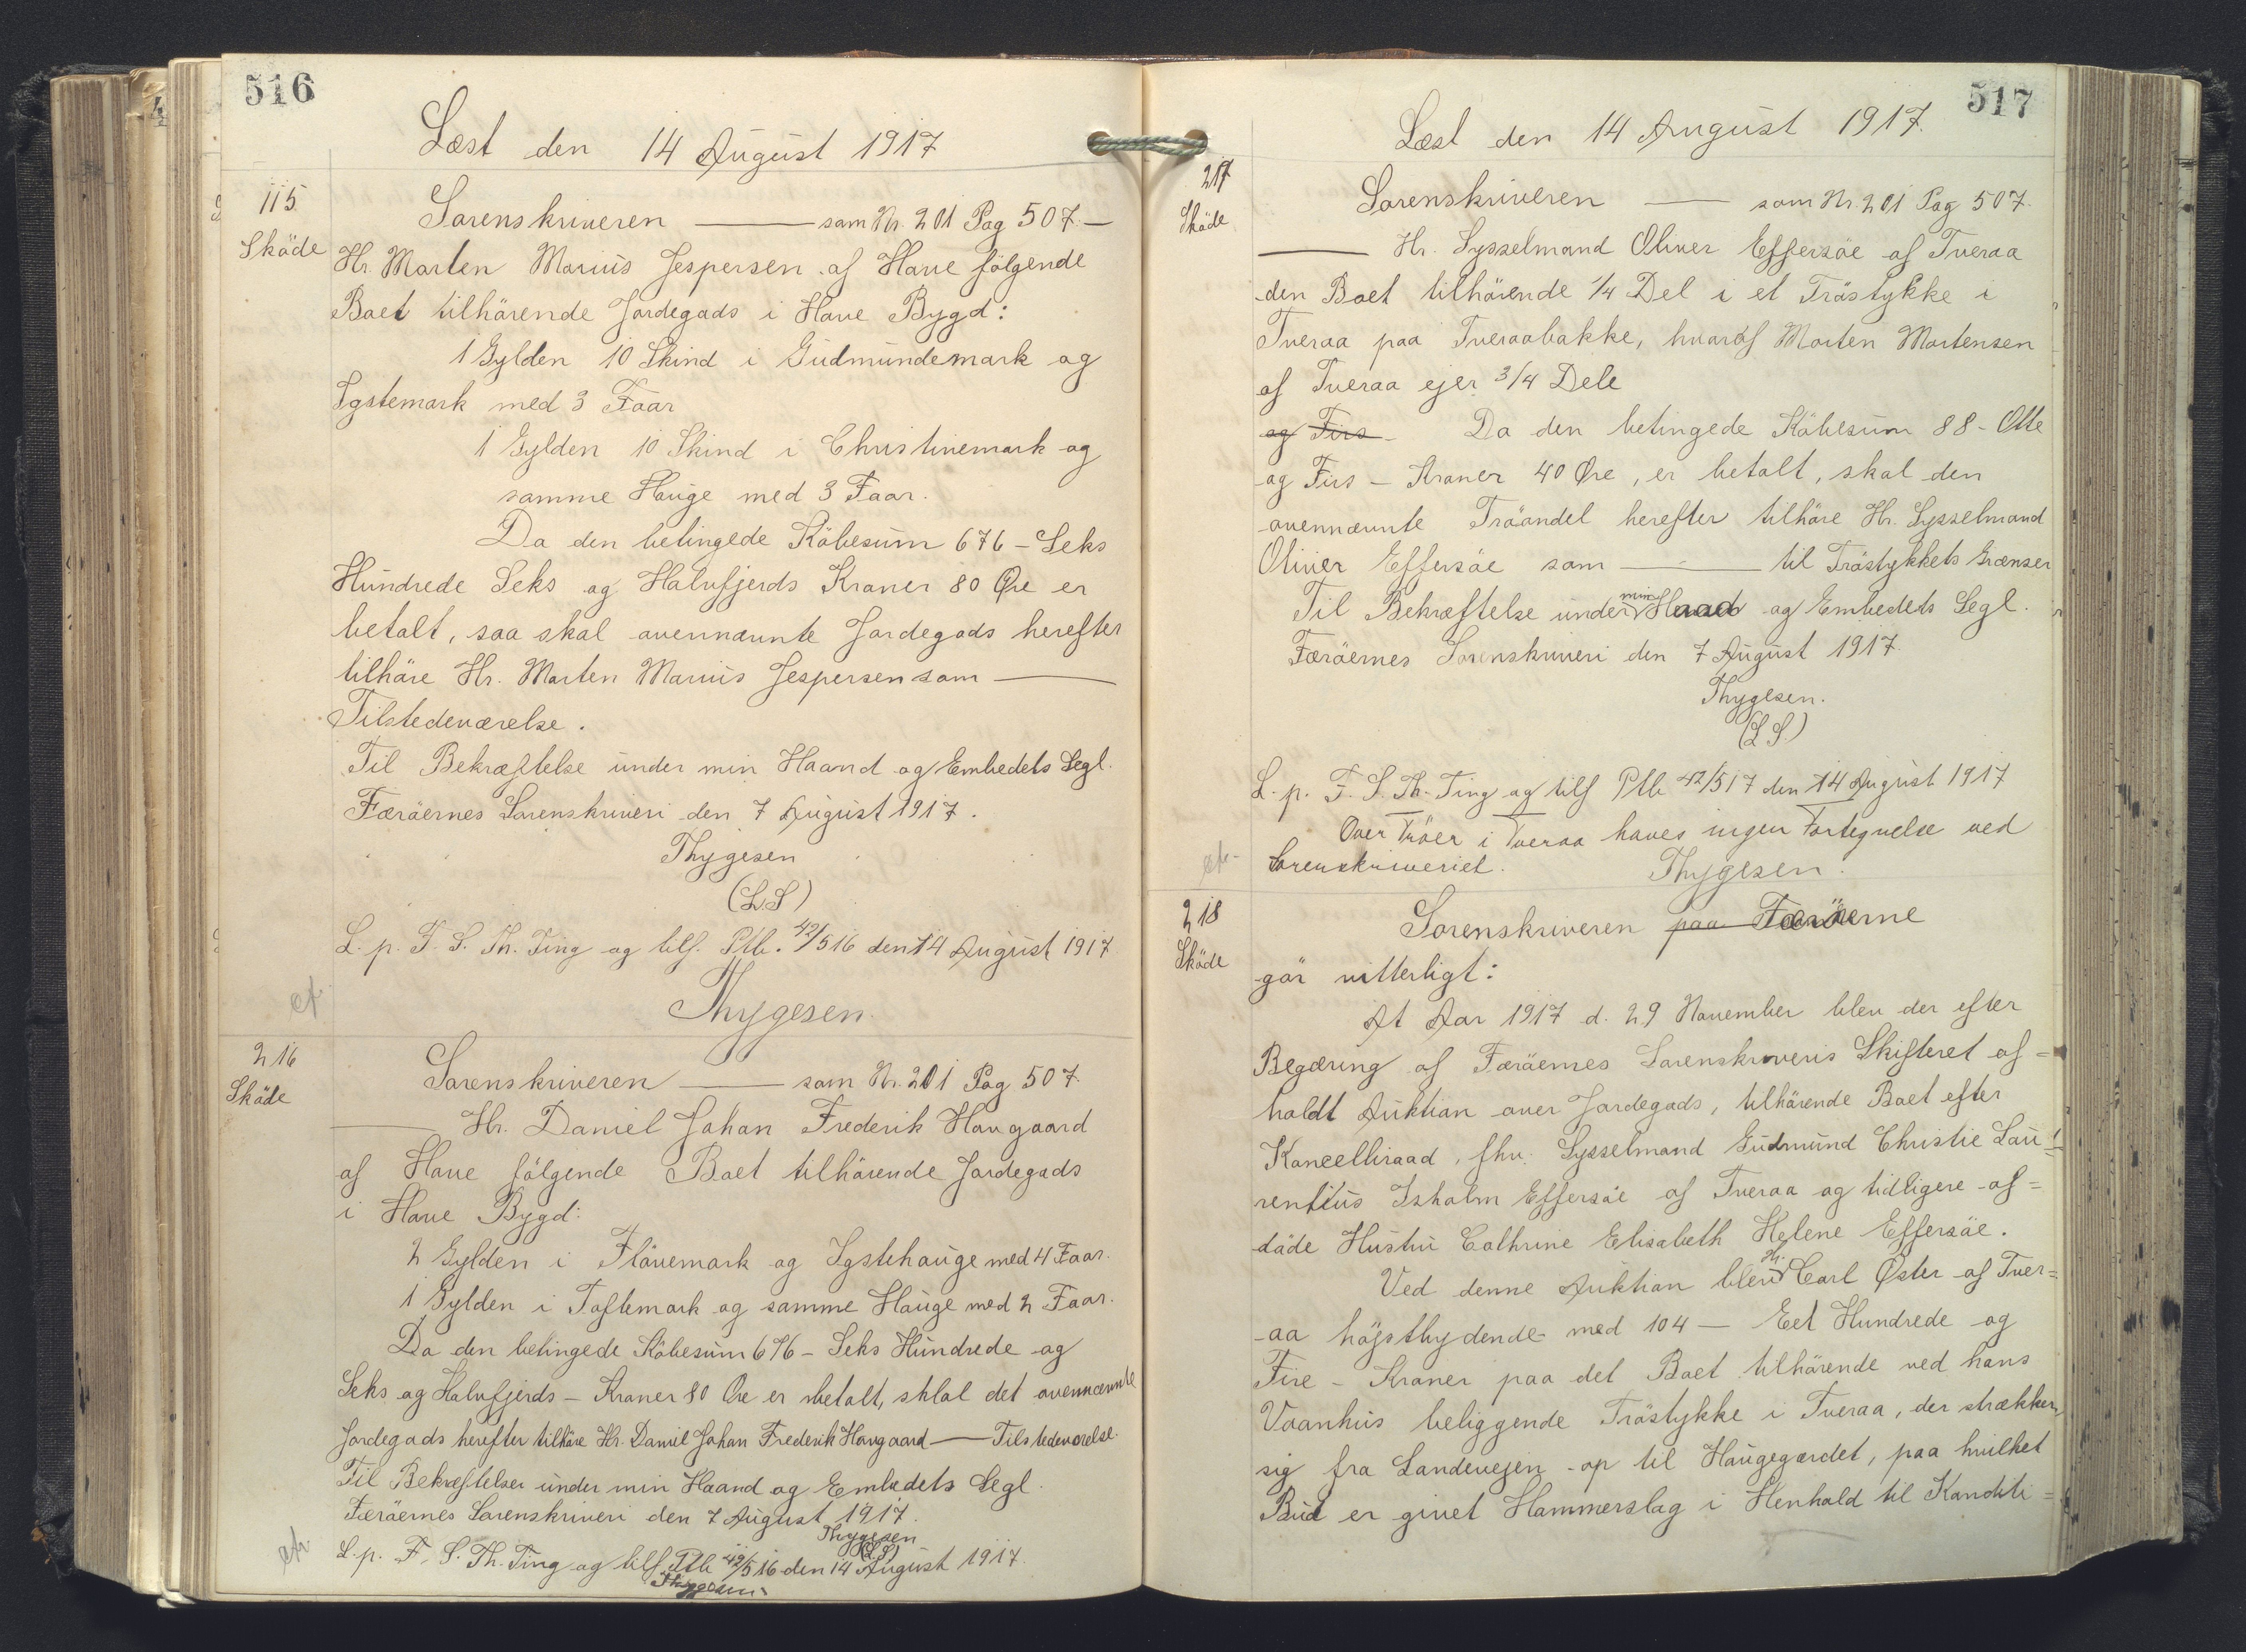 516
Læst den 14 August 1917
115
Sköde
Sorenskriveren — som Nr. 201 Pag 507. —
Hr. Morten Marius Jespersen af Hove følgende
Boet tilhörende Jordegods i Hove Bygd:
1 Gylden 10 Skind i Gudmundemark og
Igstemark med 3 Faar
1 Gylden 10 Skind i Christinemark og
samme Hauge med 3 Faar.
Da den betingede Köbesum 676 - Seks
Hundrede Seks og Halvfjerds Kroner 80 Øre er
betalt, saa skal ovennævnte Jordegods herefter
tilhöre Hr. Morten Marius Jespersen som —
Tilstedeværelse.
Til Bekræftelse under min Haand og Embedets Segl.
Færöernes Sorenskriveri den 7 August 1917.
Thygesen
(L.S)
L. p. F. S. Th. Ting og tilf. Ptb. 42/516 den 14 August 1917
cf.
Thygesen.
216
Sköde
Sorenskriveren — som Nr. 201 Pag 507.
— Hr. Daniel Johan Frederik Hovgaard
af Hove fölgende Boet tilhörende Jordegods
i Hove Bygd:
2 Gylden i Flövemark og Igstehauge med 4 Faar.
1 Gylden i Toftemark og samme Hauge med 2 Faar.
Da den betingede Köbesum 676 - Seks Hundrede og
Seks og Halvfjerds - Kroner 80 Øre er betalt, skal det ovennævnte
Jordegods herefter tilhöre Hr. Daniel Johan Frederik Hovgaard — Tilstedeværelse.
Til Bekræftelser under min Haand og Embedets Segl.
Færöernes Sorenskriveri den 7 August 1917.
Thygesen
(L.S)
L. p. F. S. Th. Ting og tilf. Ptb 42/516 den 14 August 1917.
Thygesen
517
Læst den 14 August 1917.
217
Sköde
Sorenskriveren — som Nr. 201 Pag 507.
— Hr. Sysselmand Oliver Effersöe af Tveraa
den Boet tilhörende 1/4 Del i et Tröstykke i
Tveraa paa Tveraabakke, hvoraf Morten Mortensen
af Tveraa ejer 3/4 Dele
og Firs - Da den betingede Köbesum 88 - Otte
og Firs - Kroner 40 Øre, er betalt, skal den
ovennævnte Tröandel herefter tilhöre Hr. Sysselmand
Oliver Effersöe som — til Tröstykkets Grænser
Til Bekræftelse under min Haand og Embedets Segl.
Færöernes Sorenskriveri den 7 August 1917.
Thygesen.
(L S)
L. p. F. S. Th. Ting og tilf Ptb 42/517 den 14 August 1917
Over Tröer i Tveraa haves ingen Fortegnelse ved
Sorenskriveriet.
Thygesen.
218
Sköde
Sorenskriveren paa Færöerne
gör vitterligt:
At Aar 1917 d. 29 November blev der efter
Begæring af Færöernes Sorenskriveris Skifteret af=
holdt Auktion over Jordegods, tilhörende Boet efter
Kancelliraad, fhv. Sysselmand Gudmund Christie Lau=
rentius Isholm Effersöe af Tveraa og tidligere af=
döde Hustru Cathrine Elisabeth Helene Effersöe.
Ved denne Auktion blev Hr. Carl Øster af Tver=
aa höjstbydende med 104 — Eet Hundrede og
Fire - Kroner paa det Boet tilhörende ved hans
Vaanhus beliggende Tröstykke i Tveraa, der strækker
sig fra Landevejen op til Haugegærdet, paa hvilket
Bud er givet Hammerslag i Henhold til Konditi=